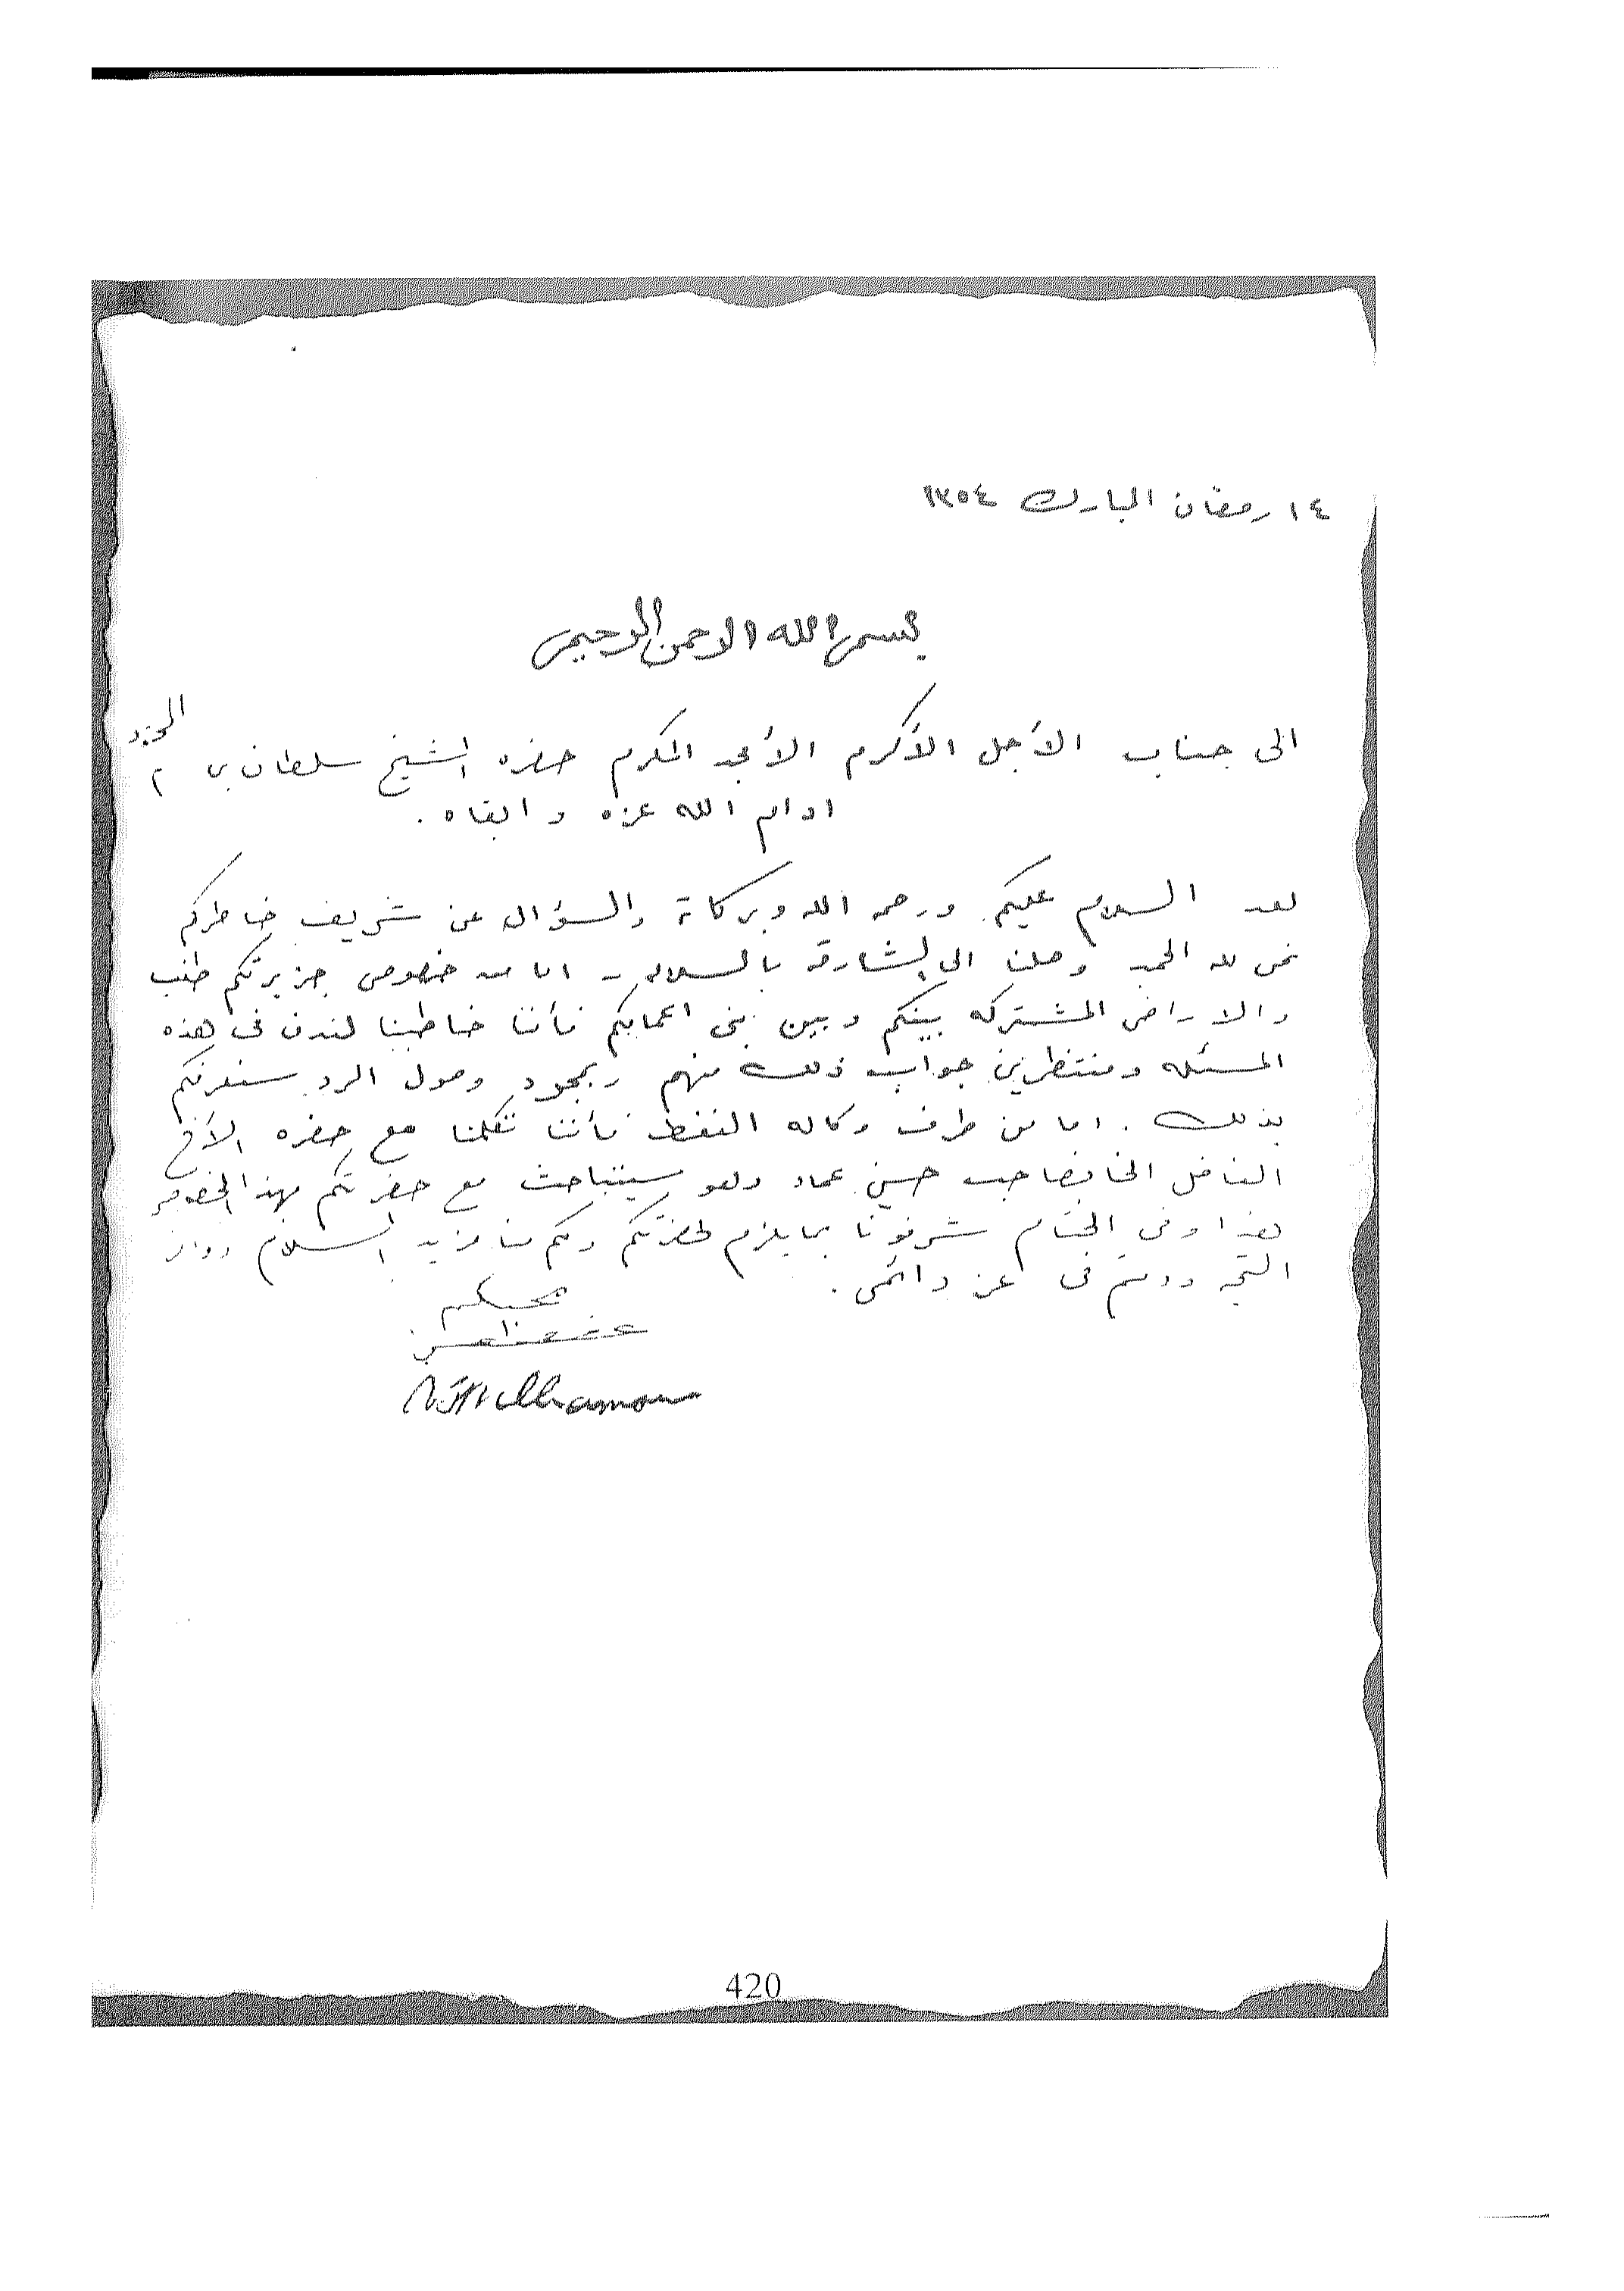 ١٤ رمضان المبارك ١٣٥٤
بسم الله الرحمن الرحيم
الى جناب الأجل الأكرم الأمجد المكرم حضره الشيخ سلطان بن
ادام الله عزه و ابقاه .
بعد السلام عليكم ورحمه الله وبركاة والسؤال عن شريف خاطركم
نحن لله الحمد وصلنا الى الشارقه بالسلامه – اما من خصوص جزيرتكم طنب
والاراضى المشتركه بينكم وبين بنى اعمامكم فأننا خاطبنا لندن فى هذه
المسئله ومنتظرين جواب ذلك منهم وبمجرد وصول الرد سنعرفكم
بذلك . اما من طرف وكاله النفط فأننا تكلمنا مع حضره الأخ
الفاضل الخانصاحب حسين عماد وهو سيتباحث مع حضرتكم بهذا الخصوص
هذا وفى الختام شرفونا بما يلزم لحضرتكم ولكم منا مزيد السلام
التحيه ودمتم فى عز دائمى .
محبكم
420